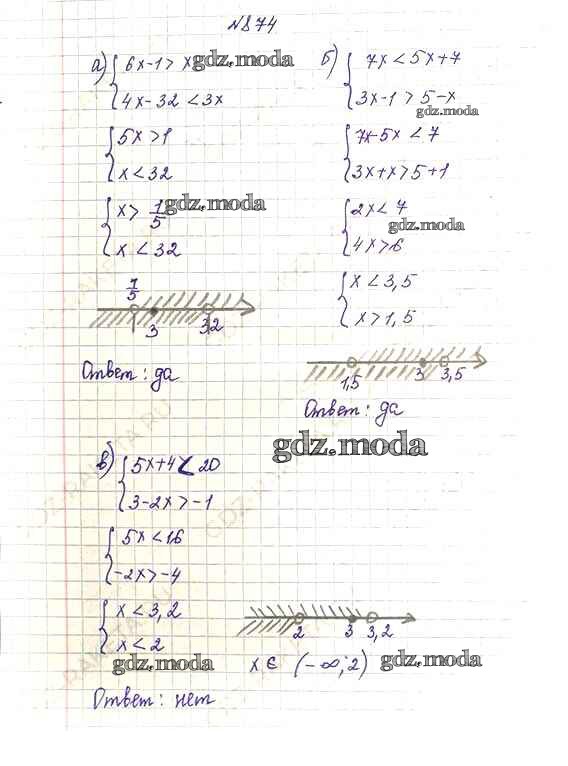 №874
а) { 6x-1 > x gdz.moda
4x-32 < 3x
{ 5x > 1
x < 32
{ x > 1/5 gdz.moda
x < 32
1/5 3 32
Ответ: да
б) { 7x < 5x+7
3x-1 > 5-x
gdz.moda
{ 7x-5x < 7
3x+x > 5+1
{ 2x < 7
gdz.moda
4x > 6
{ x < 3,5
x > 1,5
1,5 3 3,5
Ответ: да
gdz.moda
в) { 5x+4 < 20
3-2x > -1
{ 5x < 16
-2x > -4
{ x < 3,2
x < 2
gdz.moda
2 3 3,2
x ∈ (-∞; 2) gdz.moda
Ответ: нет